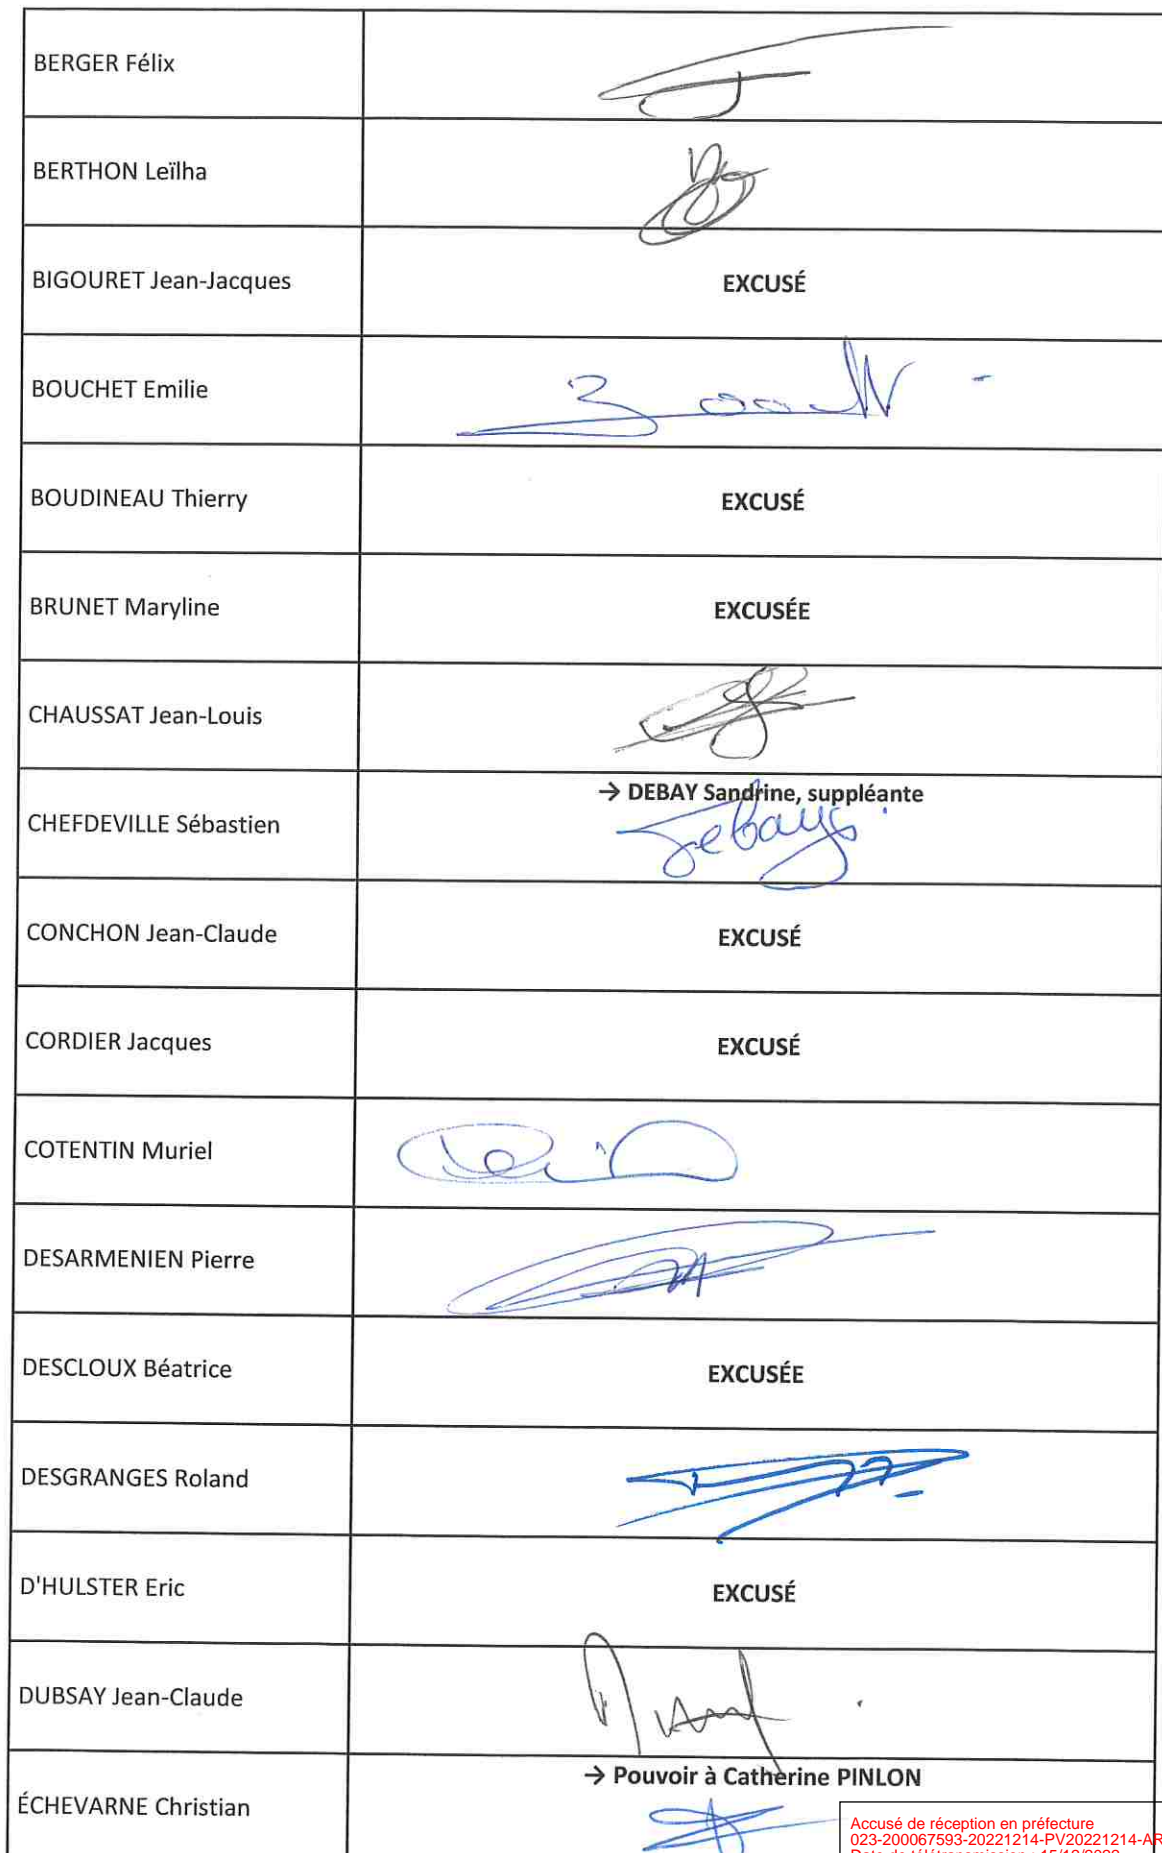 BERGER Félix
BERTHON Leïlha
BIGOURET Jean-Jacques
EXCUSÉ
BOUCHET Emilie
BOUDINEAU Thierry
EXCUSÉ
BRUNET Maryline
EXCUSÉE
CHAUSSAT Jean-Louis
→ DEBAY Sandrine, suppléante
CHEFDEVILLE Sébastien
Debay
CONCHON Jean-Claude
EXCUSÉ
CORDIER Jacques
EXCUSÉ
COTENTIN Muriel
DESARMENIEN Pierre
DESCLOUX Béatrice
EXCUSÉE
DESGRANGES Roland
D'HULSTER Eric
EXCUSÉ
DUBSAY Jean-Claude
→ Pouvoir à Catherine PINLON
ÉCHEVARNE Christian
Accusé de réception en préfecture
023-200067593-20221214-PV20221214-AR